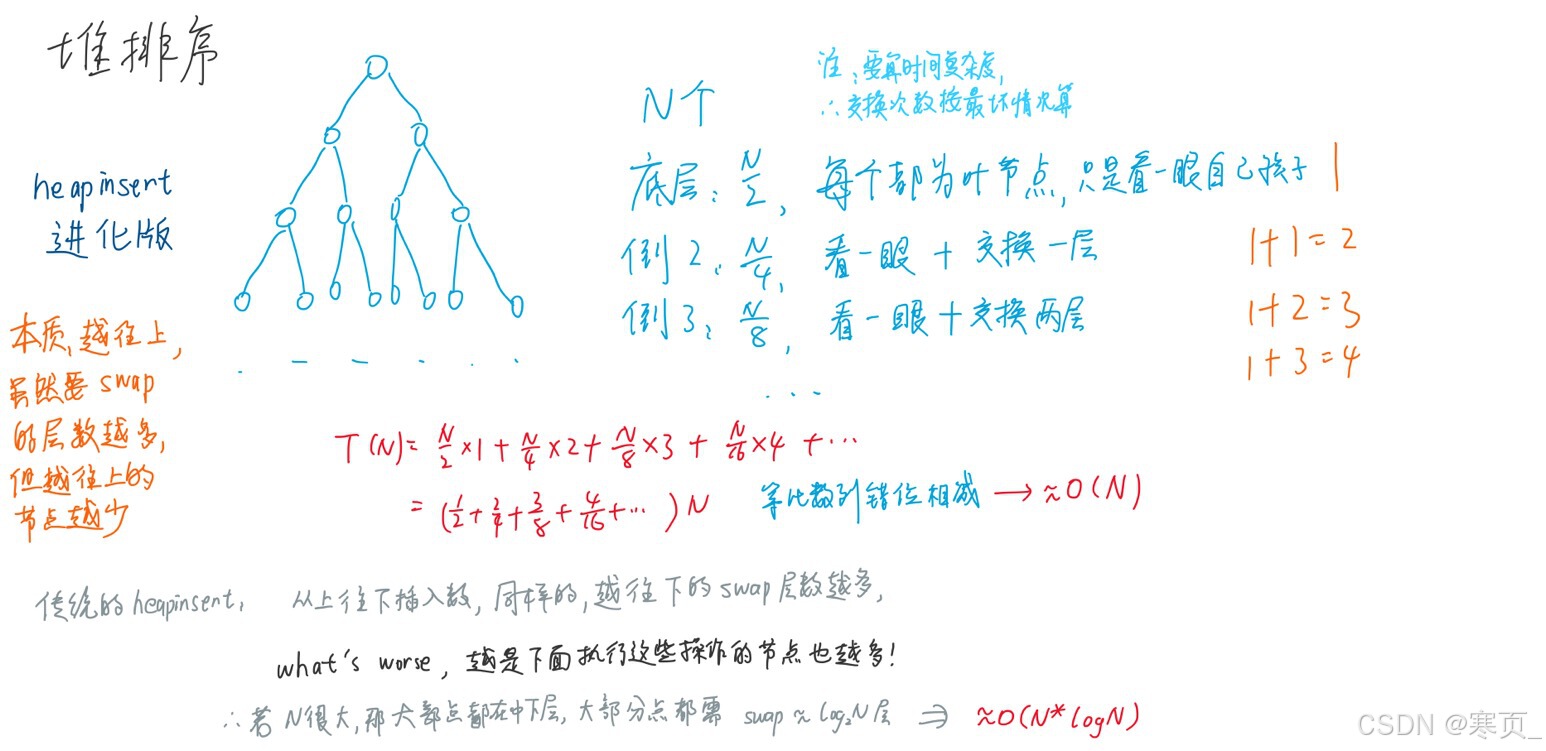 堆排序
heapinsert
进化版
本质,越往上,
虽然要 swap
的层数越多,
但越往上的
节点越少
注:要算时间复杂度,
∴交换次数按最坏情况算
N个
底层: N/2, 每个都为叶节点,只是看一眼自己孩子 1
倒2: N/4, 看一眼 + 交换一层 1+1=2
倒3: N/8, 看一眼+交换两层 1+2=3
1+3=4
...
T(N)= N/2×1+N/4×2+N/8×3+N/16×4+…
=(1/2+2/4+3/8+4/16+…)N 等比数列错位相减→≈O(N)
传统的heapinsert, 从上往下插入数,同样的,越往下的swap层数越多,
what's worse,越是下面执行这些操作的节点也越多!
∴若N很大,那大部点都在中下层,大部分点都需 swap≈log₂N层 ⇒ ≈O(N*logN)
CSDN @寒页_